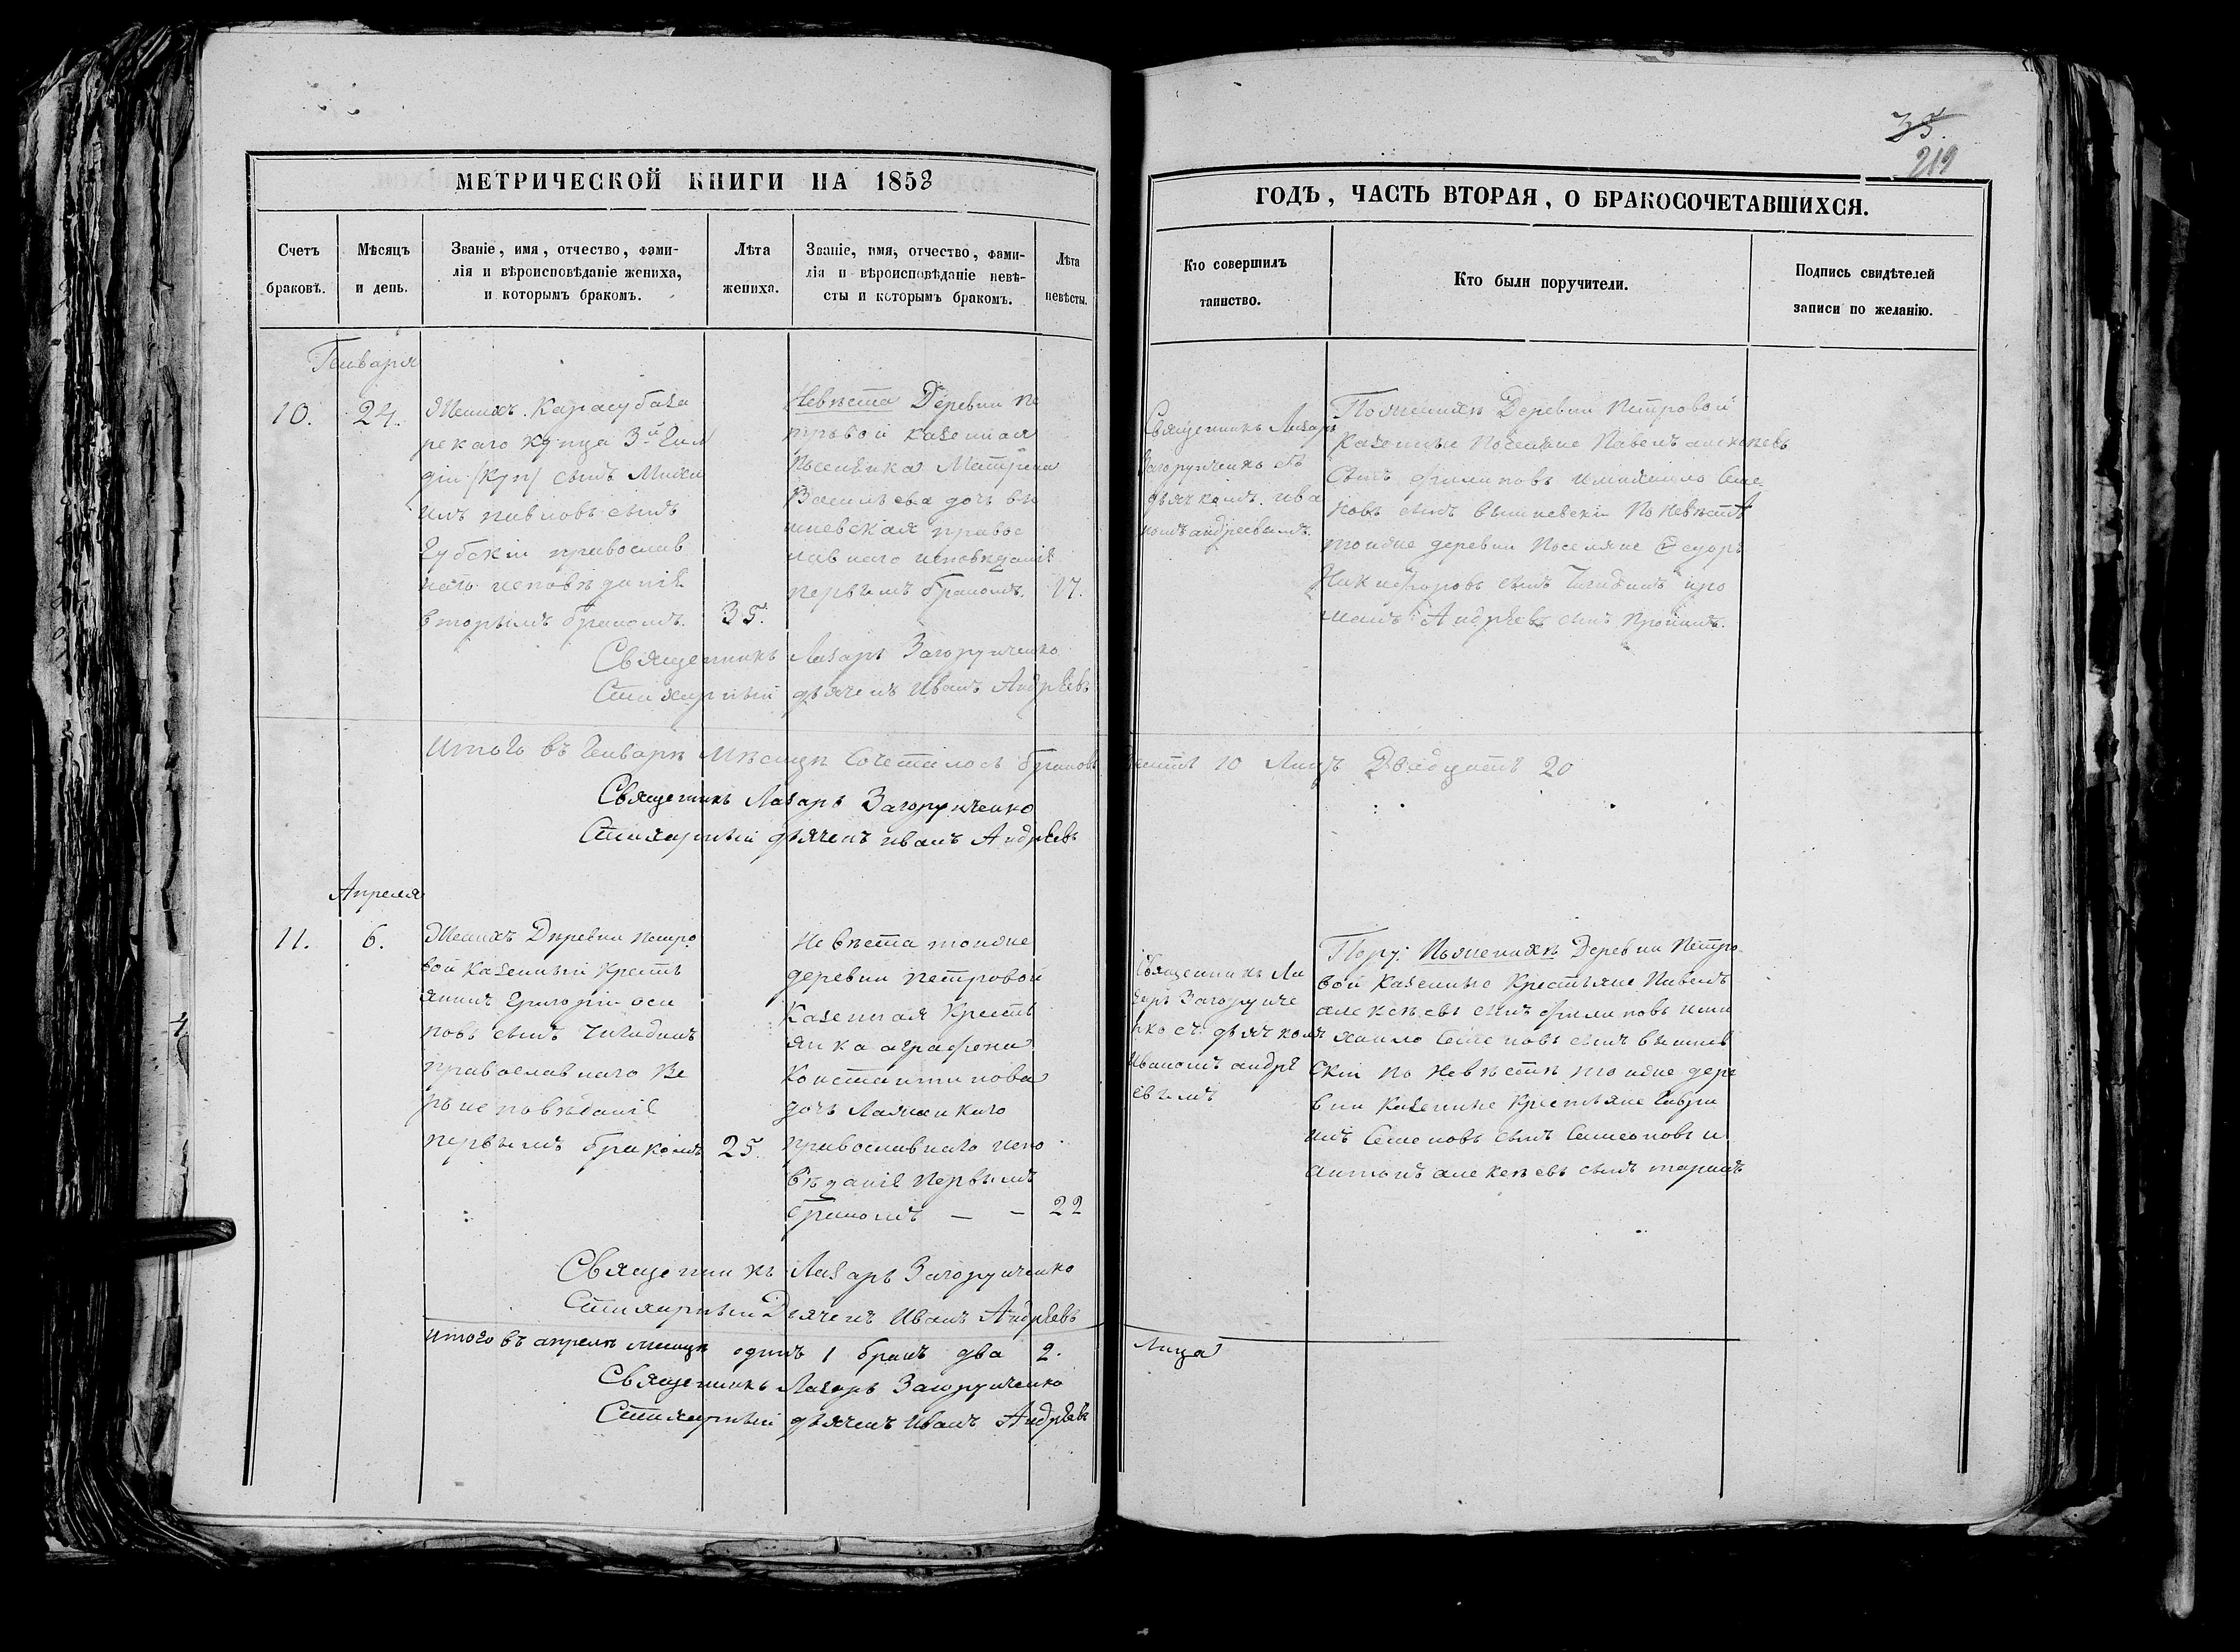 35.
219
МЕТРИЧЕСКОЙ КНИГИ НА 1858
ГОДЪ, ЧАСТЬ ВТОРАЯ, О БРАКОСОЧЕТАВШИХСЯ.
Счетъ браковъ.
Мѣсяцъ и день.
Званіе, имя, отчество, фами-
лія и вѣроисповѣданіе жениха,
и которымъ бракомъ.
Лѣта жениха.
Званіе, имя, отчество, фами-
лія и вѣроисповѣданіе невѣ-
сты и которымъ бракомъ.
Лѣта невѣсты.
Кто совершилъ
таинство.
Кто были поручители.
Подпись свидѣтелей
записи по желанію.
Генваря
10.
24.
Женихъ Карасубаза
рскаго купца 3й Гил
діи сынъ Михаи
илъ павловъ сынъ
Губскій православ
наго исповѣданія
вторымъ бракомъ.
35.
Невѣста Деревни Пе
тровой казенная
Поселянка Матрона
Васильева дочь Ви
шневская правос
лавнаго исповѣданія
первымъ бракомъ.
17.
Священникъ Лазарь
Загорученко съ
дьячкомъ ива
номъ андреевымъ.
По женихѣ Деревни Петровой
Казенные Поселяне Павелъ алексѣевъ
сынъ филиповъ и михаило Семе
новъ сынъ вышневскій По невѣстѣ
тоиже деревни Поселяне Федоръ
Никифоровъ сынъ Чигидинъ и ро
манъ Андрѣевъ сынъ
Священникъ Лазарь Загорученко
Стихарный дьячекъ Иванъ Андрѣевъ
Итого въ Генварѣ Мѣсяцѣ Сочеталось браковъ
10 Лицъ Двадцать 20
Священникъ Лазарь Загорученко
Стихарный дьячекъ иванъ Андрѣевъ
Апреля
11.
6.
Женихъ Деревни Петро
вой Казенный Кресть
янинъ Григорій оси
повъ сынъ Чигидинъ
православнаго Ве
роисповѣданія
первымъ бракомъ
25.
Невѣста тоиже
деревни Петровой
Казенная Кресть
янка аграфена
Константинова
дочь
православнаго испо
вѣданія Первымъ
бракомъ — —
22
Священникъ Ла
зарь Загоруче
нко съ дьячкомъ
Иваномъ андрѣ
евымъ
Пору: По женихѣ Деревни Петро
вой Казенные Крестьяне Павелъ
алексѣевъ сынъ филиповъ и ми
хаило Семеновъ сынъ вышнев
скій по Невѣстѣ тоиже дере
вни Казенные Крестьяне Гаври
илъ Семеновъ сынъ Симеоновъ и
антонъ алексѣевъ сынъ таранъ
Священникъ Лазарь Загорученко
Стихарный Дьячекъ Иванъ Андрѣевъ
Итого въ апрелѣ месяцѣ одинъ 1 бракъ два 2.
Лица
Священникъ Лазарь Загорученко
Стихарный дьячекъ Иванъ Андрѣевъ